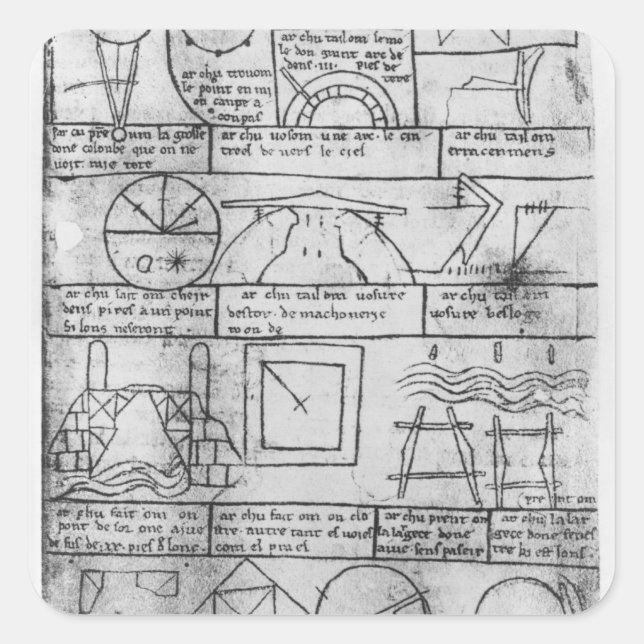 ar chu tail om le mo
le don grant arc de
dens .iii. pies de
tere
ar chu trovom
le point en mi
on canpe a
conpas
par cu prent om la grosse
done colonbe que on ne
voit mie tote
ar chu vosom une arc. le cin
treol. devers le ciel
ar chu tail om
erracenmens
ar chu fait om cheir
deus pires a un point
si lons neseront.
ar chu tail om vosure
destor. de machonerie
roonde
ar chu tail om
vosure besloge
ar chu fait om on
pont desor one aive
de fus de .xx. pies d lonc.
ar chu fait om on clo
stre. autretant es voies
com el prael
ar chu prent om
la largece done
aive. sens paseir
prent om
ar chu la lar
gece done fenes
tre ki est lons.